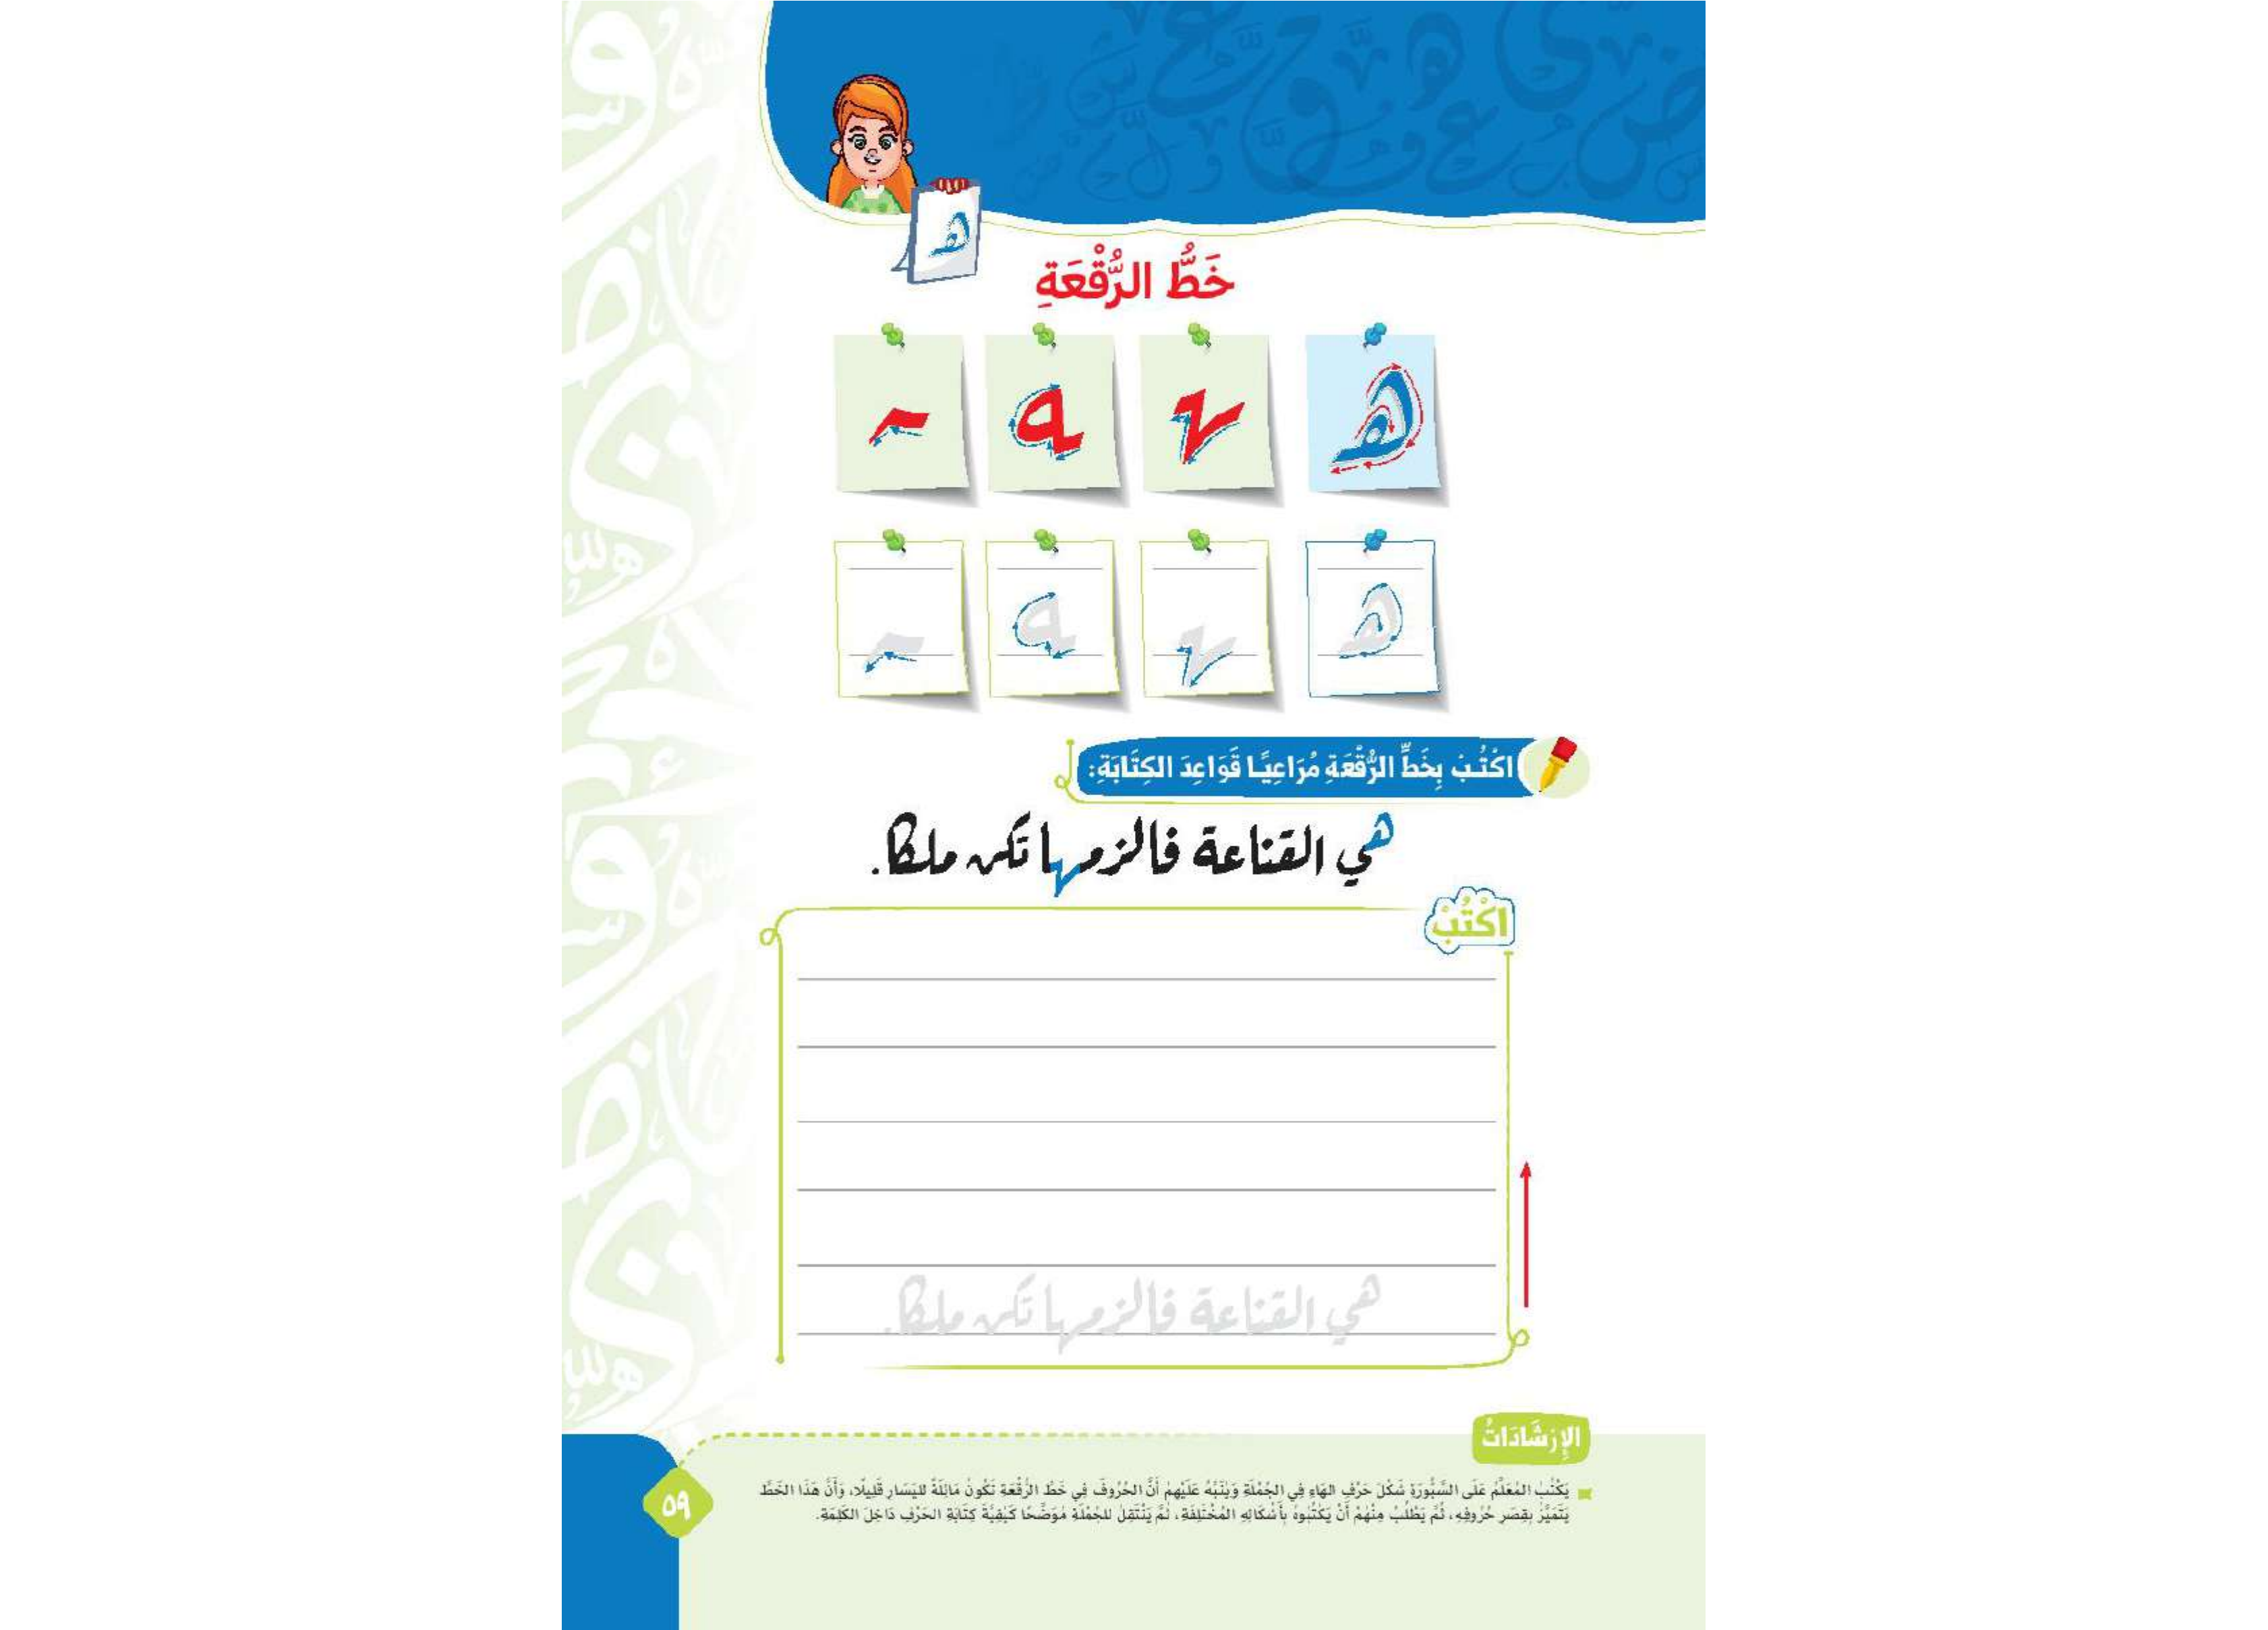 خَطُّ الرُّقْعَةِ
اكْتُبْ بِخَطِّ الرُّقْعَةِ مُرَاعِيًا قَوَاعِدَ الكِتَابَةِ:
هي القناعة فالزمها تكن ملكا.
اكْتُبْ
هي القناعة فالزمها تكن ملكا.
الإِرْشَادَاتُ
يَكْتُبُ المُعَلِّمُ عَلَى السَّبُّورَةِ شَكْلَ حَرْفِ الهَاءِ فِي الجُمْلَةِ وَيُنَبِّهُ عَلَيْهِمْ أَنَّ الحُرُوفَ فِي خَطِّ الرُّقْعَةِ تَكُونُ مَائِلَةً لليَسَارِ قَلِيلًا، وَأَنَّ هَذَا الخَطَّ
يَتَمَيَّزُ بِقِصَرِ حُرُوفِهِ، ثُمَّ يَطْلُبُ مِنْهُمْ أَنْ يَكْتُبُوهُ بِأَشْكَالِهِ المُخْتَلِفَةِ، ثُمَّ يَنْتَقِلُ للجُمْلَةِ مُوَضِّحًا كَيْفِيَّةَ كِتَابَةِ الحَرْفِ دَاخِلَ الكَلِمَةِ.
٥٩